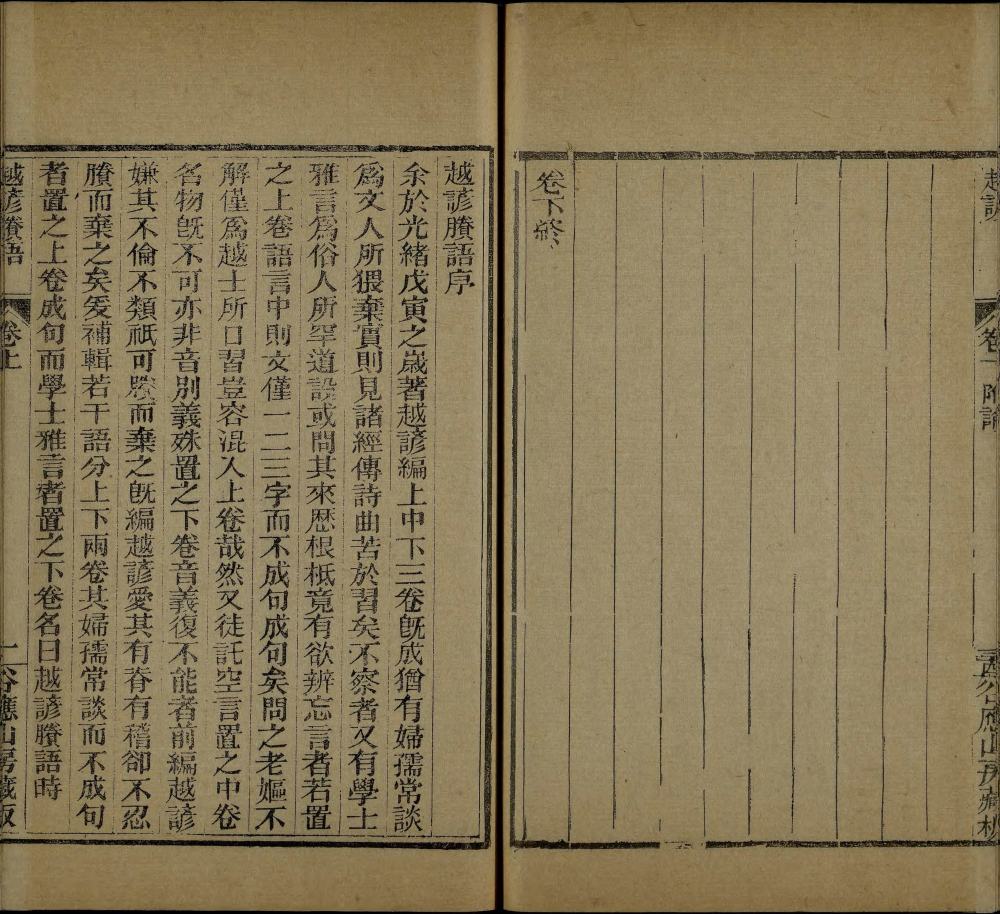 越諺
卷下附論
谷應山房藏板
卷下終
越諺賸語序
余於光緒戊寅之歲著越諺編上中下三卷旣成猶有婦孺常談
爲文人所猥棄實則見諸經傳詩曲苦於習矣不察者又有學士
雅言爲俗人所罕道設或問其來歷根柢竟有欲辨忘言者若置
之上卷語言中則文僅一二三字而不成句成句矣問之老嫗不
解僅爲越士所口習豈容混入上卷哉然又徒託空言置之中卷
名物旣不可亦非音別義殊置之下卷音義復不能者前編越諺
嫌其不倫不類祇可賸而棄之旣編越諺愛其有脊有稽卻不忍
賸而棄之矣爰補輯若干語分上下兩卷其婦孺常談而不成句
者置之上卷成句而學士雅言者置之下卷名曰越諺賸語時
越諺賸語
卷上
一
谷應山房藏板